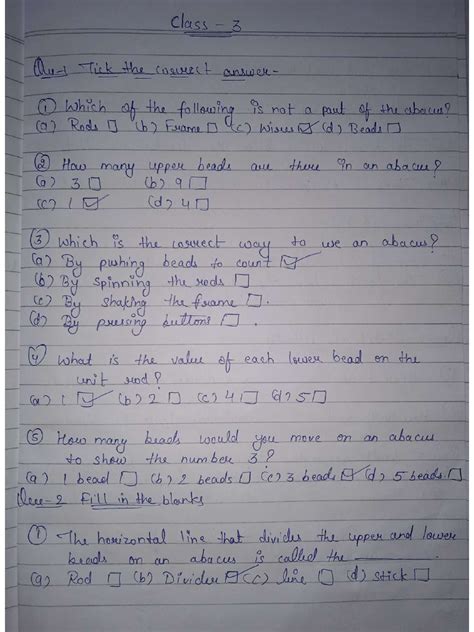 Class - 3
Que-1 Tick the correct answer-
① Which of the following is not a part of the abacus?
(a) Rods ☐ (b) Frame ☐ (c) Wires ☑ (d) Beads ☐
② How many upper beads are there in an abacus?
(a) 3 ☐ (b) 9 ☐
(c) 1 ☑ (d) 4 ☐
③ Which is the correct way to use an abacus?
(a) By pushing beads to count ☑
(b) By spinning the rods ☐
(c) By shaking the frame ☐.
(d) By pressing buttons ☐.
④ What is the value of each lower bead on the
unit rod?
(a) 1 ☑ (b) 2 ☐ (c) 4 ☐ (d) 5 ☐
⑤ How many beads would you move on an abacus
to show the number 3?
(a) 1 bead ☐ (b) 2 beads ☐ (c) 3 beads ☑ (d) 5 beads ☐
Que-2 Fill in the blanks
① The horizontal line that divides the upper and lower
beads on an abacus is called the ________.
(a) Rod ☐ (b) Divider ☑ (c) line ☐ (d) stick ☐